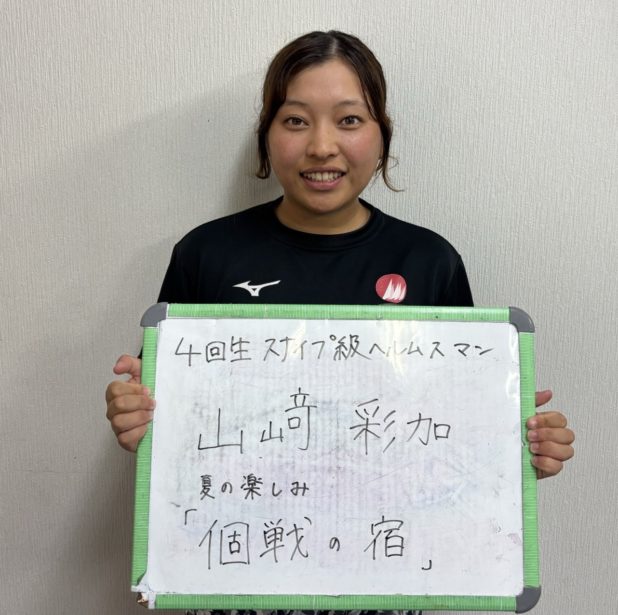 4回生 スナイプ級ヘルムスマン
山﨑 彩加
夏の楽しみ
「個戦の宿」